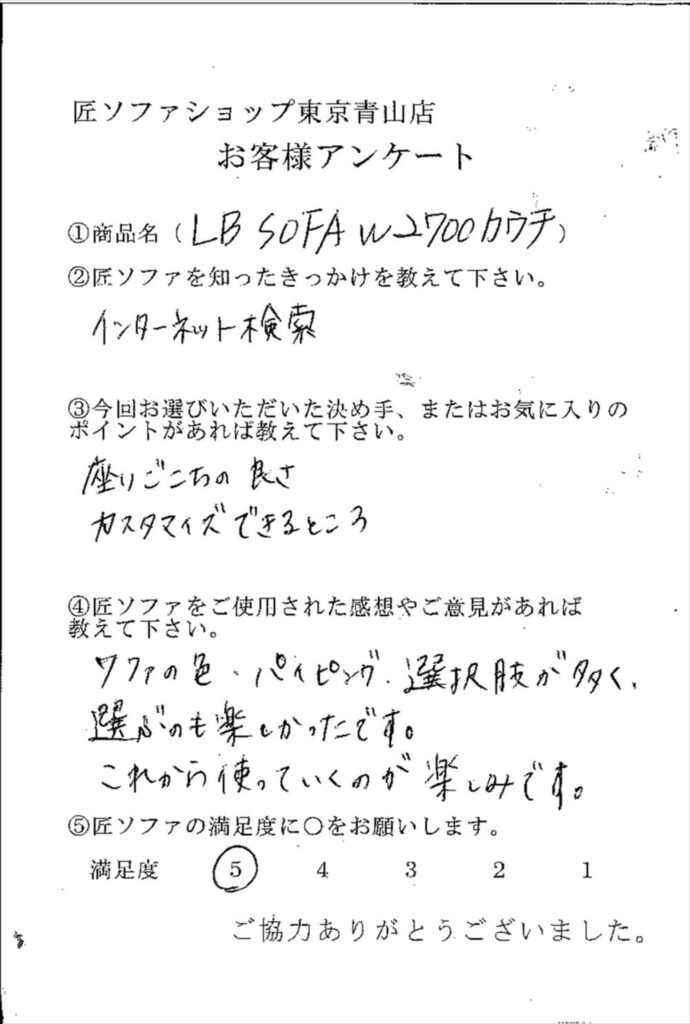 匠ソファショップ東京青山店
お客様アンケート
①商品名（LB SOFA W2700カウチ）
②匠ソファを知ったきっかけを教えて下さい。
インターネット検索
③今回お選びいただいた決め手、またはお気に入りの
ポイントがあれば教えて下さい。
座りごこちの良さ
カスタマイズできるところ
④匠ソファをご使用された感想やご意見があれば
教えて下さい。
ソファの色・パイピング、選択肢が多く、
選ぶのも楽しかったです。
これから使っていくのが楽しみです。
⑤匠ソファの満足度に〇をお願いします。
満足度 5 4 3 2 1
ご協力ありがとうございました。